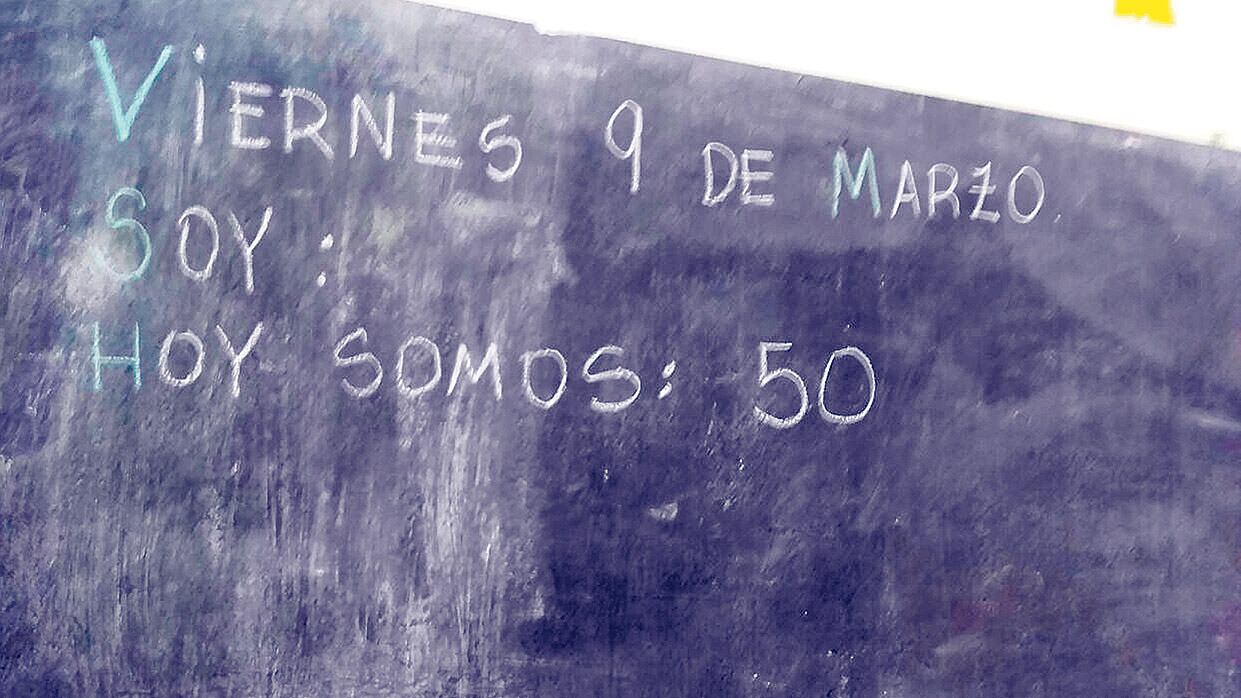 ViERNES 9 DE MARZO.
SOY :
HOY SOMOS: 50